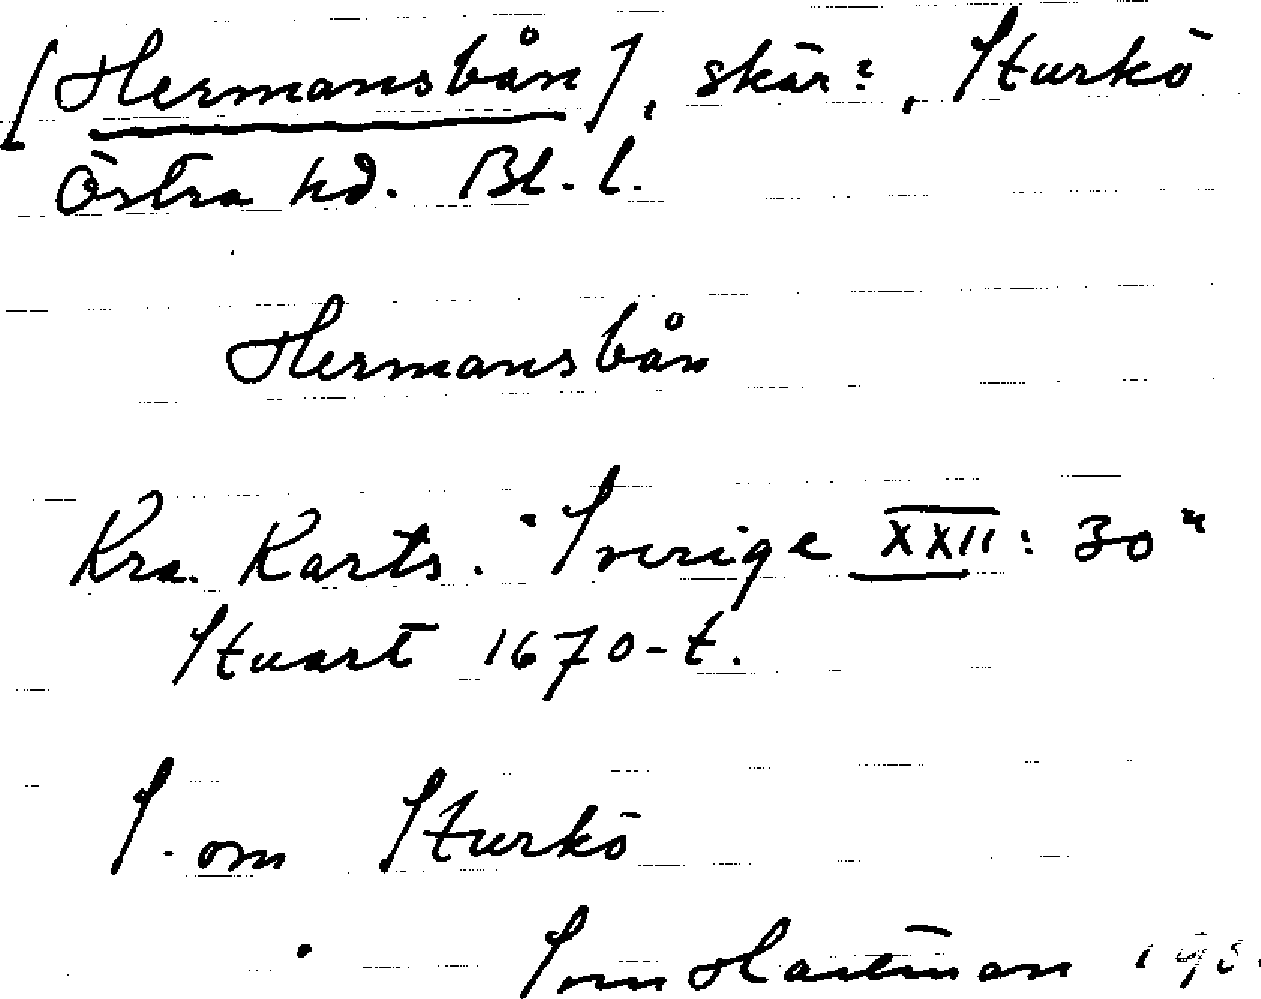 [Hermansbån], skär?, Sturkö
Östra hd. Bl. l.
Hermansbån
Kra. Karts. "Sverige XXII: 30"
Stuart 1670-t.
S. om Sturkö
Sven Hallman